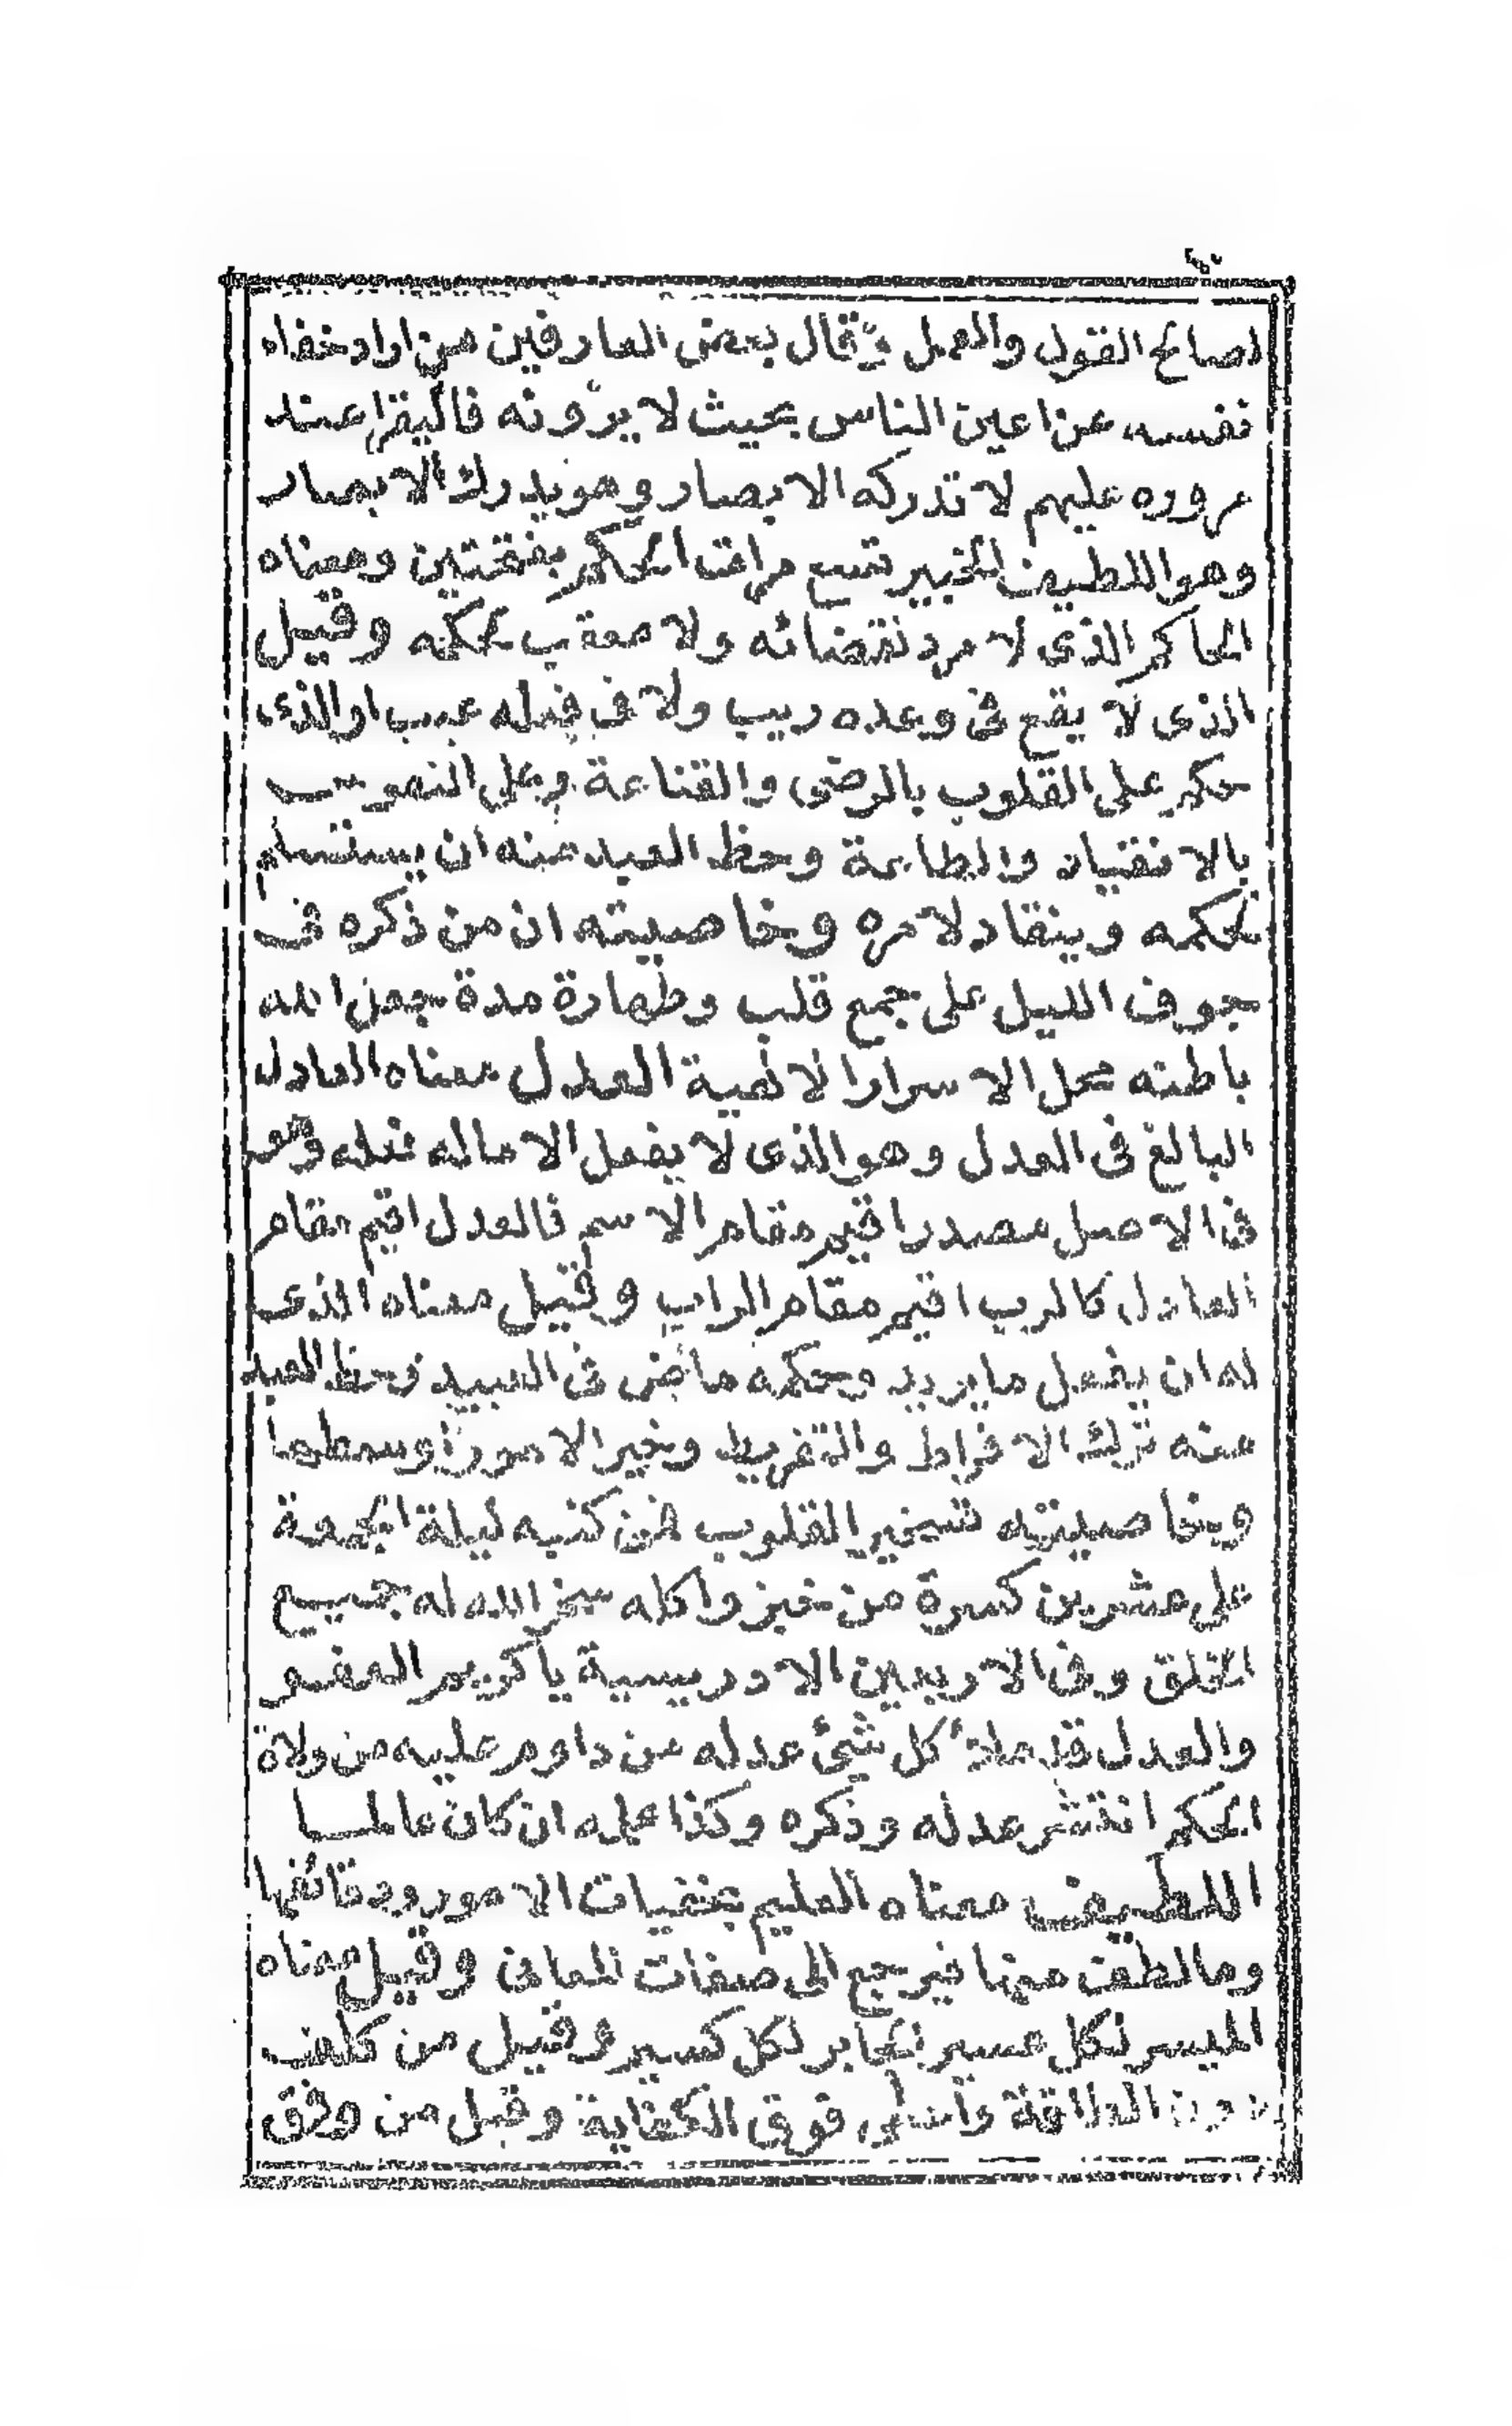 لصالح القول والعمل وقال بعض العارفين من اراد خفاء
نفسه عن اعين الناس بحيث لا يرونه فاليقرا عند
مروره عليهم لا تدركه الابصار وهو يدرك الابصار
وهو اللطيف الخبير تسع مرات الحكم بفتحتين ومعناه
الحاكم الذى لا مرد لقضائه ولا معقب لحكمه وقيل
الذى لا يقع فى وعده ريب ولا فى فعله عيب او الذى
حكم على القلوب بالرضى والقناعة وعلى النفوس
بالانقياد والطاعة وحظ العبد منه ان يستسلم
لحكمه وينقاد لامره وخاصيته ان من ذكره فى
جوف الليل على جمع قلب وطهارة مدة جعل الله
باطنه محل الاسرار الالهية العدل معناه العادل
البالغ فى العدل وهو الذى لا يفعل الا ماله فعله وهو
فى الاصل مصدر اقيم مقام الاسم فالعدل اقيم مقام
العادل كالرب اقيم مقام الراب وقيل معناه الذى
له ان يفعل ما يريد وحكمه ماض فى العبيد وحظ العبد
منه ترك الافراط والتفريط وخير الامور اوسطها
وخاصيته تسخير القلوب فمن كتبه ليلة الجمعة
على عشرين كسرة من خبز واكله سخر الله له جميع
الخلق وفى الاربعين الادريسية يا كريم العفو
والعدل قد ملأ كل شئ عدله من داوم عليه من ولاة
الحكم انتشر عدله وذكره وكذا علمه ان كان عالما
اللطيف معناه العليم بخفيات الامور ودقائقها
وما لطف منها فيرجع الى صفات المعانى وقيل معناه
الميسر لكل عسير الجابر لكل كسير وقيل من كلف
دون الطاقة واعطى فوق الكفاية وقيل من وفق